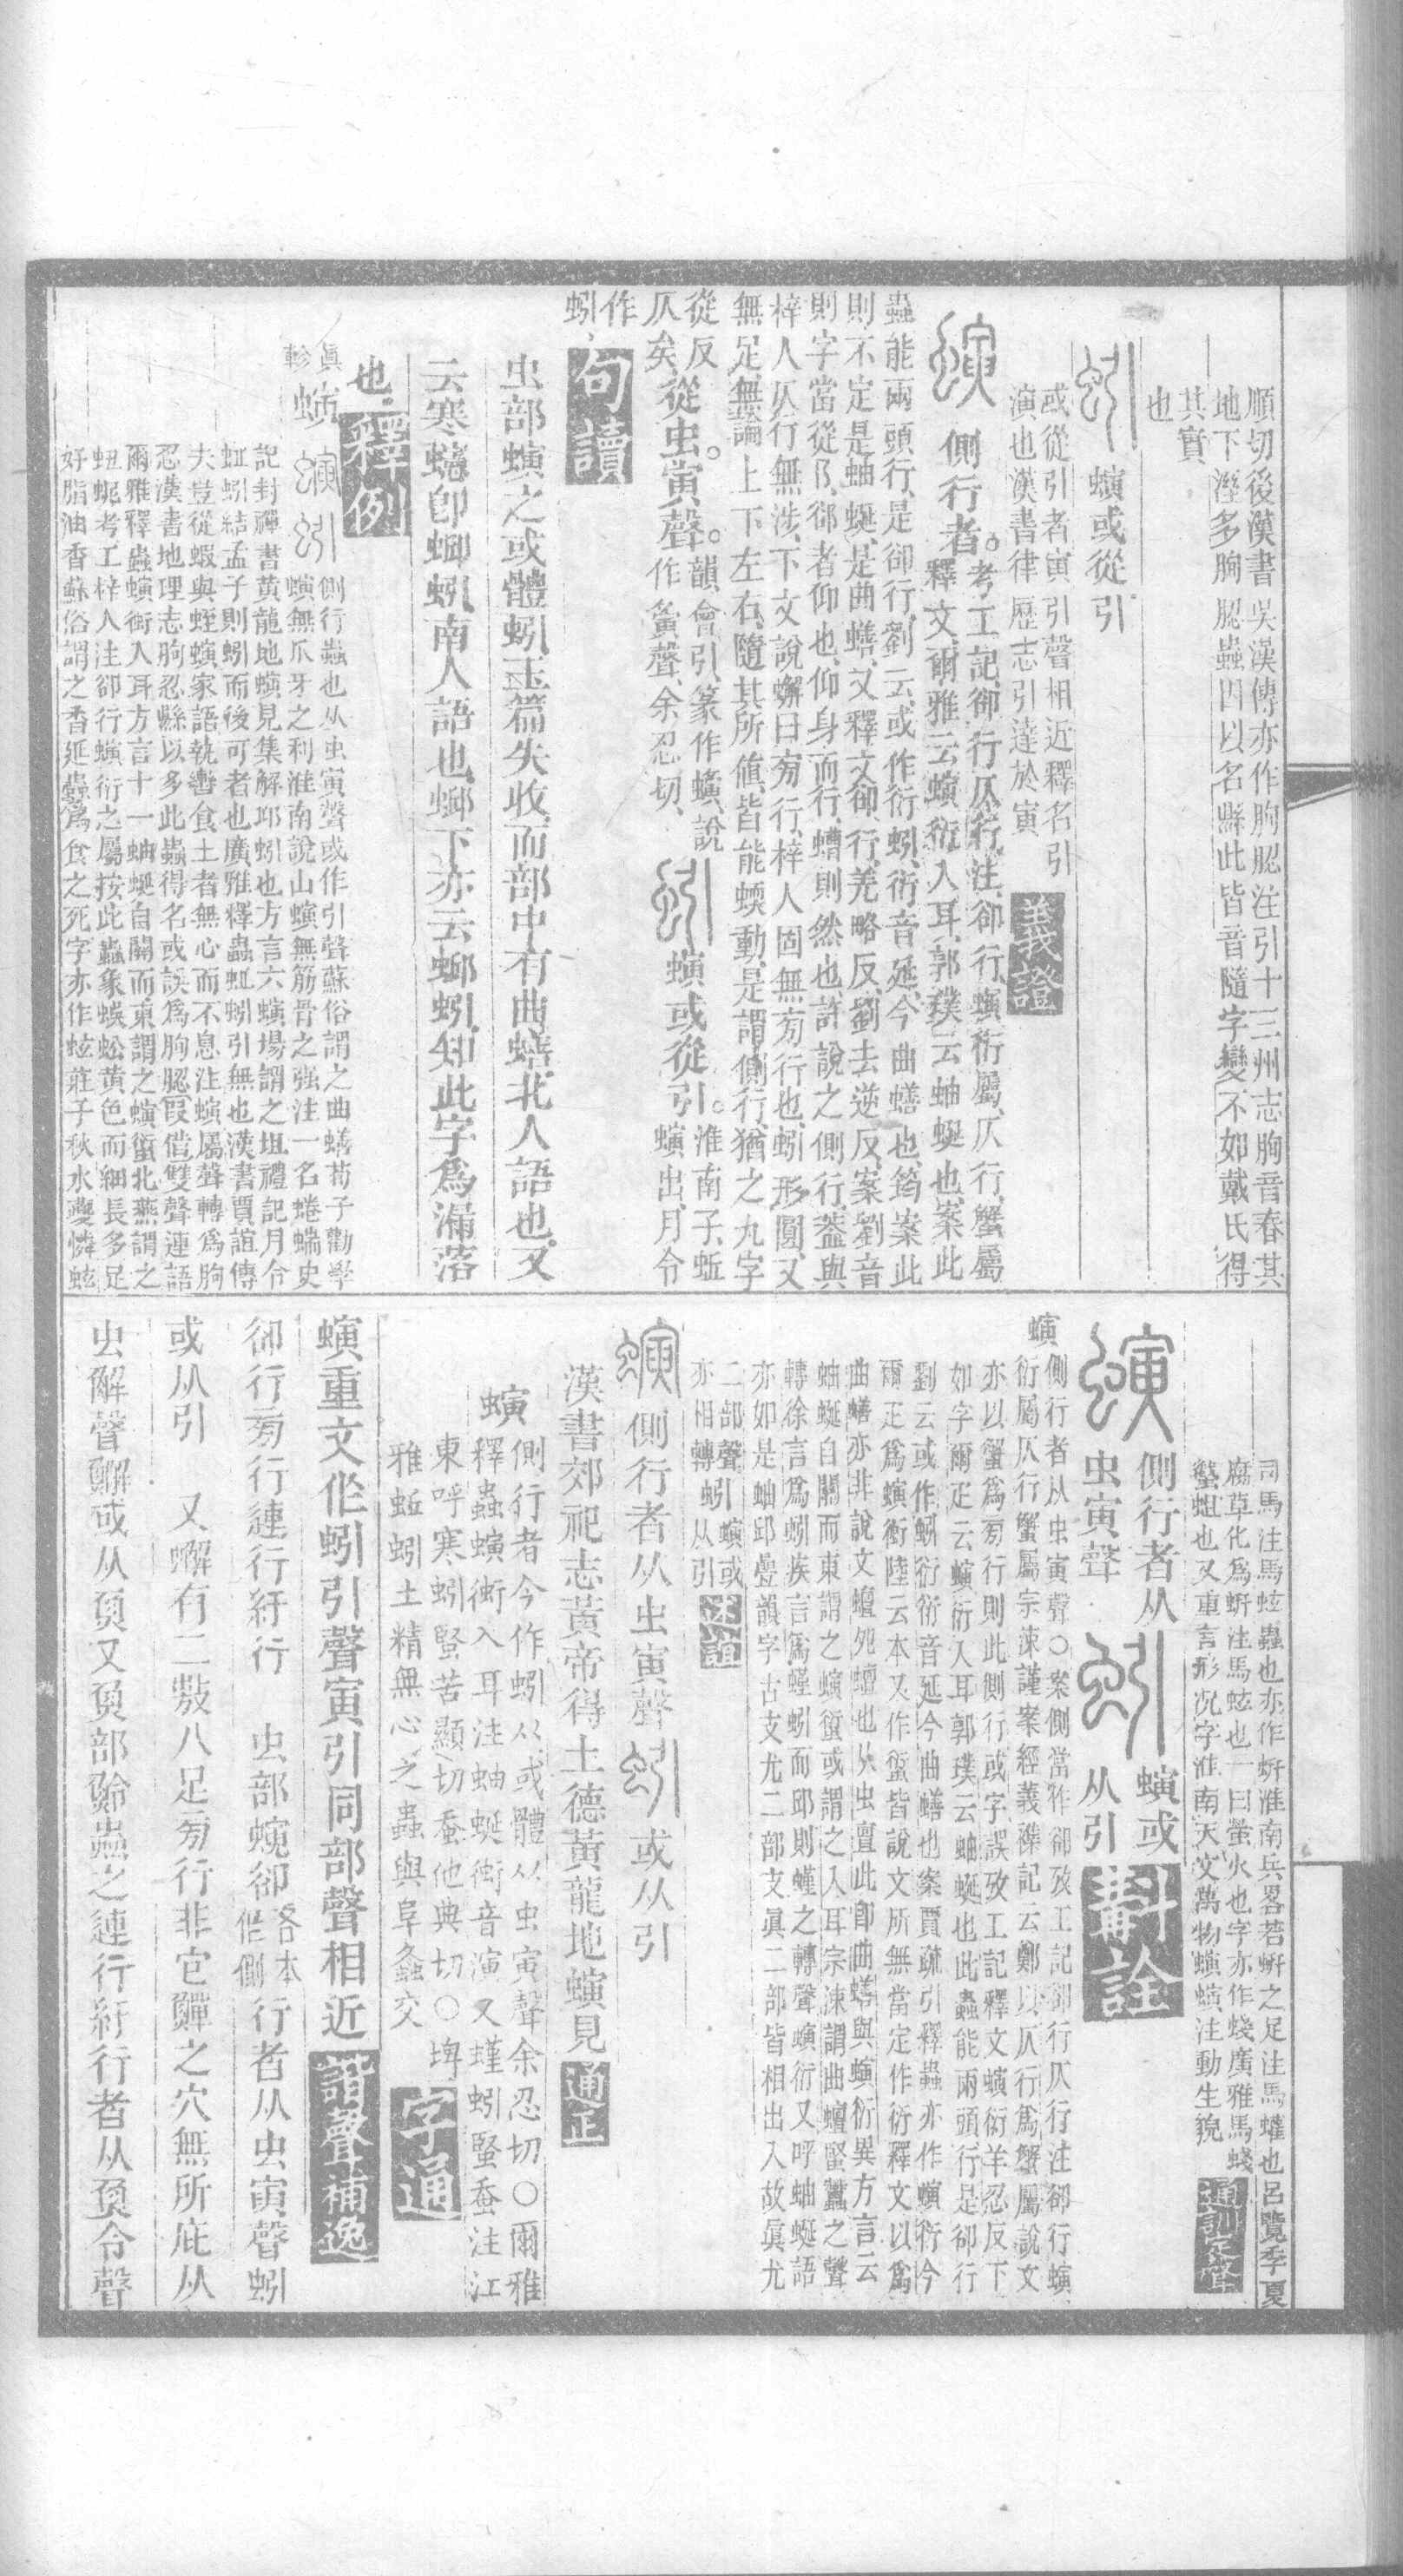 順切後漢書吳漢傳亦作朐䏰注引十三州志朐音春其
地下溼多朐䏰蟲因以名縣此皆音隨字變不如戴氏得
其實
也
螾或從引
或從引者寅引聲相近釋名引
演也漢書律歷志引達於寅
義證
側行者。考工記卻行仄行注卻行螾衍屬仄行蟹屬
釋文爾雅云螾衍入耳郭璞云蚰蜒也案此
蟲能兩頭行是卻行劉云或作衍蚓衍音延今曲蟮也筠案此
則不定是蚰蜒是曲蟮又釋文卻行羌略反劉去逆反案劉音
則字當從卩郤者仰也仰身而行螬則然也許說之側行蓋與
梓人仄行無涉下文說蠏曰旁行梓人固無旁行也蚓形圓又
無足無論上下左右隨其所值皆能蝡動是謂側行猶之丸字
從反
仄矣從虫。寅聲。韻會引篆作螾說
作𧑒聲余忍切
螾或從引。淮南子蚯
螾出月令
作
蚓
句讀
虫部螾之或體蚓玉篇失收而部中有曲蟮北人語也又
云寒蠸卽蝍蚓南人語也蝍下亦云蝍蚓知此字爲漏落
也
釋例
螾
側行蟲也从虫寅聲或作引聲蘇俗謂之曲蟮荀子勸學
螾無爪牙之利淮南說山螾無筋骨之强注一名蜷蠕史
記封禪書黃龍地螾見集解邱蚓也方言六螾場謂之坥禮記月令
蚯蚓結孟子則蚓而後可者也廣雅釋蟲蚯蚓引無也漢書賈誼傳
夫豈從蝦與蛭螾家語執轡食土者無心而不息注螾屬聲轉爲朐
忍漢書地理志朐忍縣以多此蟲得名或誤爲朐䏰叚借雙聲連語
爾雅釋蟲螾衝入耳方言十一蚰蜒自關而東謂之螾蚙北燕謂之
蚭蚭考工梓人注卻行螾衍之屬按此蟲象蜈蚣黃色而細長多足
好脂油香蘇俗謂之香延蟲爲食之死字亦作蚿莊子秋水夔憐蚿
司馬注馬蚿蟲也亦作蚈淮南兵畧若蚈之足注馬蠸也呂覽季夏
腐草化爲蚈注馬蚿也一曰螢火也字亦作蝬廣雅馬蝬
䗃蛆也又重言形況字淮南天文萬物螾螾注動生貌
通訓定聲
側行者从
虫寅聲
螾或
从引
斠詮
螾
側行者从虫寅聲〇案側當作卻攷工記卻行仄行注卻行螾
衍屬仄行蟹屬宗涑謹案經義襍記云鄭以仄行爲蟹屬說文
亦以蟹爲旁行則此側行或字誤攷工記釋文螾衍羊忍反下
如字爾疋云螾衍入耳郭璞云蚰蜒也此蟲能兩頭行是卻行
劉云或作蚓衍衍音延今曲蟮也案賈疏引釋蟲亦作螾衍今
爾疋爲螾衝陸云本又作蚙皆說文所無當定作衍釋文以爲
曲蟮亦非說文蟺夗蟺也从虫亶此卽曲蟮與螾衍異方言云
蚰蜒自關而東謂之螾蚙或謂之入耳宗涑謂曲蟺堅蠶之聲
轉徐言爲蚓疾言爲螼蚓而邱則螼之轉聲螾衍又呼蚰蜒語
亦如是蚰邱疊韻字古支尤二部支眞二部皆相出入故眞尤
二部聲引螾或
亦相轉蚓从引
述誼
側行者从虫寅聲
或从引
漢書郊祀志黃帝得土德黃龍地螾見
通正
螾
側行者今作蚓从或體从虫寅聲余忍切〇爾雅
釋蟲螾衝入耳注蚰蜒衝音演又螼蚓豎蚕注江
東呼寒蚓豎苦顯切蚕他典切〇埤
雅蚯蚓土精無心之蟲與阜螽交
字通
螾重文作蚓引聲寅引同部聲相近
諧聲補逸
卻行旁行連行紆行　虫部螾卻各本
作側行者从虫寅聲蚓
或从引　又蠏有二敖八足旁行非它鱓之穴無所庇从
虫解聲𩼤或从魚又魚部䰼蟲之連行紆行者从魚令聲